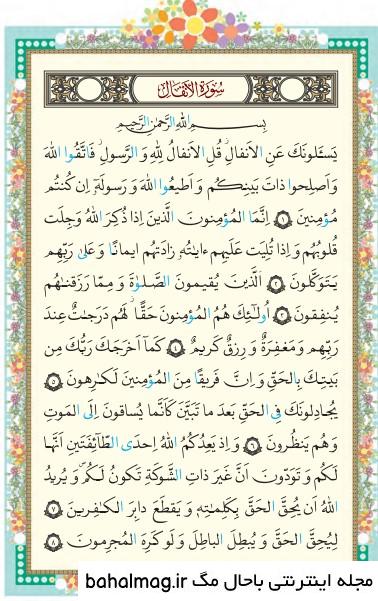 سورة الأنفال
بِسمِ اللهِ الرَّحمٰنِ الرَّحيمِ
يَسـَٔلونَكَ عَنِ الاَنفالِ قُلِ الاَنفالُ لِلّٰهِ وَ الرَّسولِ فَاتَّقُوا اللهَ
وَ اَصلِحوا ذاتَ بَينِكُم وَ اَطيعُوا اللهَ وَ رَسولَهٗ اِن كُنتُم
مُؤمِنينَ ﴿١﴾ اِنَّمَا المُؤمِنونَ الَّذينَ اِذا ذُكِرَ اللهُ وَجِلَت
قُلوبُهُم وَ اِذا تُلِيَت عَلَيهِم ءايٰتُهٗ زادَتهُم ايمانًا وَ عَلىٰ رَبِّهِم
يَتَوَكَّلونَ ﴿٢﴾ اَلَّذينَ يُقيمونَ الصَّلوٰةَ وَ مِمّا رَزَقنٰهُم
يُنفِقونَ ﴿٣﴾ اُولٰئِكَ هُمُ المُؤمِنونَ حَقًّا لَهُم دَرَجٰتٌ عِندَ
رَبِّهِم وَ مَغفِرَةٌ وَ رِزقٌ كَريمٌ ﴿٤﴾ كَما اَخرَجَكَ رَبُّكَ مِن
بَيتِكَ بِالحَقِّ وَ اِنَّ فَريقًا مِنَ المُؤمِنينَ لَكارِهونَ ﴿٥﴾
يُجادِلونَكَ فِى الحَقِّ بَعدَ ما تَبَيَّنَ كَاَنَّما يُساقونَ اِلَى المَوتِ
وَ هُم يَنظُرونَ ﴿٦﴾ وَ اِذ يَعِدُكُمُ اللهُ اِحدَى الطّائِفَتَينِ اَنَّها
لَكُم وَ تَوَدّونَ اَنَّ غَيرَ ذاتِ الشَّوكَةِ تَكونُ لَكُم وَ يُريدُ
اللهُ اَن يُحِقَّ الحَقَّ بِكَلِمٰتِهٖ وَ يَقطَعَ دابِرَ الكٰفِرينَ ﴿٧﴾
لِيُحِقَّ الحَقَّ وَ يُبطِلَ الباطِلَ وَ لَو كَرِهَ المُجرِمونَ ﴿٨﴾
مجله اینترنتی باحال مگ bahalmag.ir